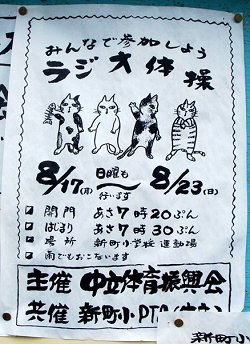 みんなで参加しよう
ラジオ体操
8/17(月) 日曜も 行います 8/23(日)
開門 あさ7時20ぷん
はじまり あさ7時30ぷん
場所 新町小学校 運動場
雨でもおこないます
主催 中立体育振興会
共催 新町小PTA
新町小